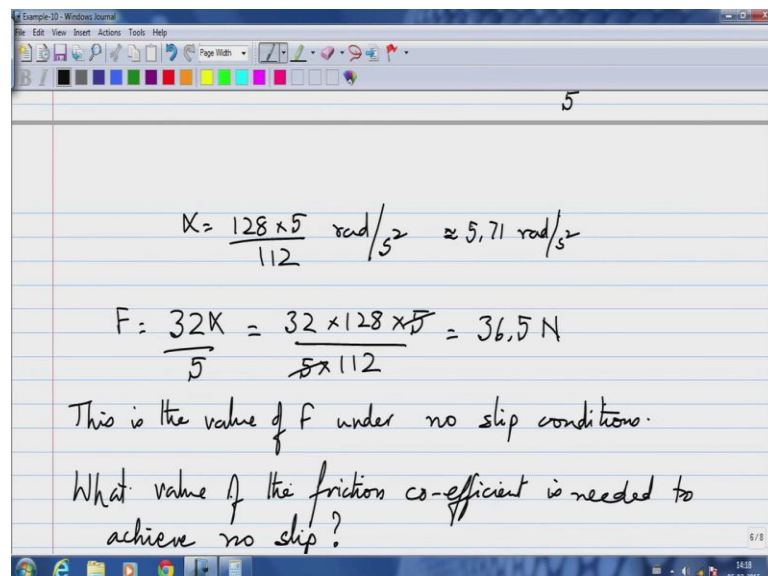 Example-10 - Windows Journal
File Edit View Insert Actions Tools Help
Page Width
B I
5
α = 128 × 5 / 112 rad/s² ≈ 5.71 rad/s²
F = 32α / 5 = 32 × 128 × 5 / 5 × 112 = 36.5 N
This is the value of F under no slip conditions.
What value of the friction co-efficient is needed to
achieve no slip?
6/8
14:18